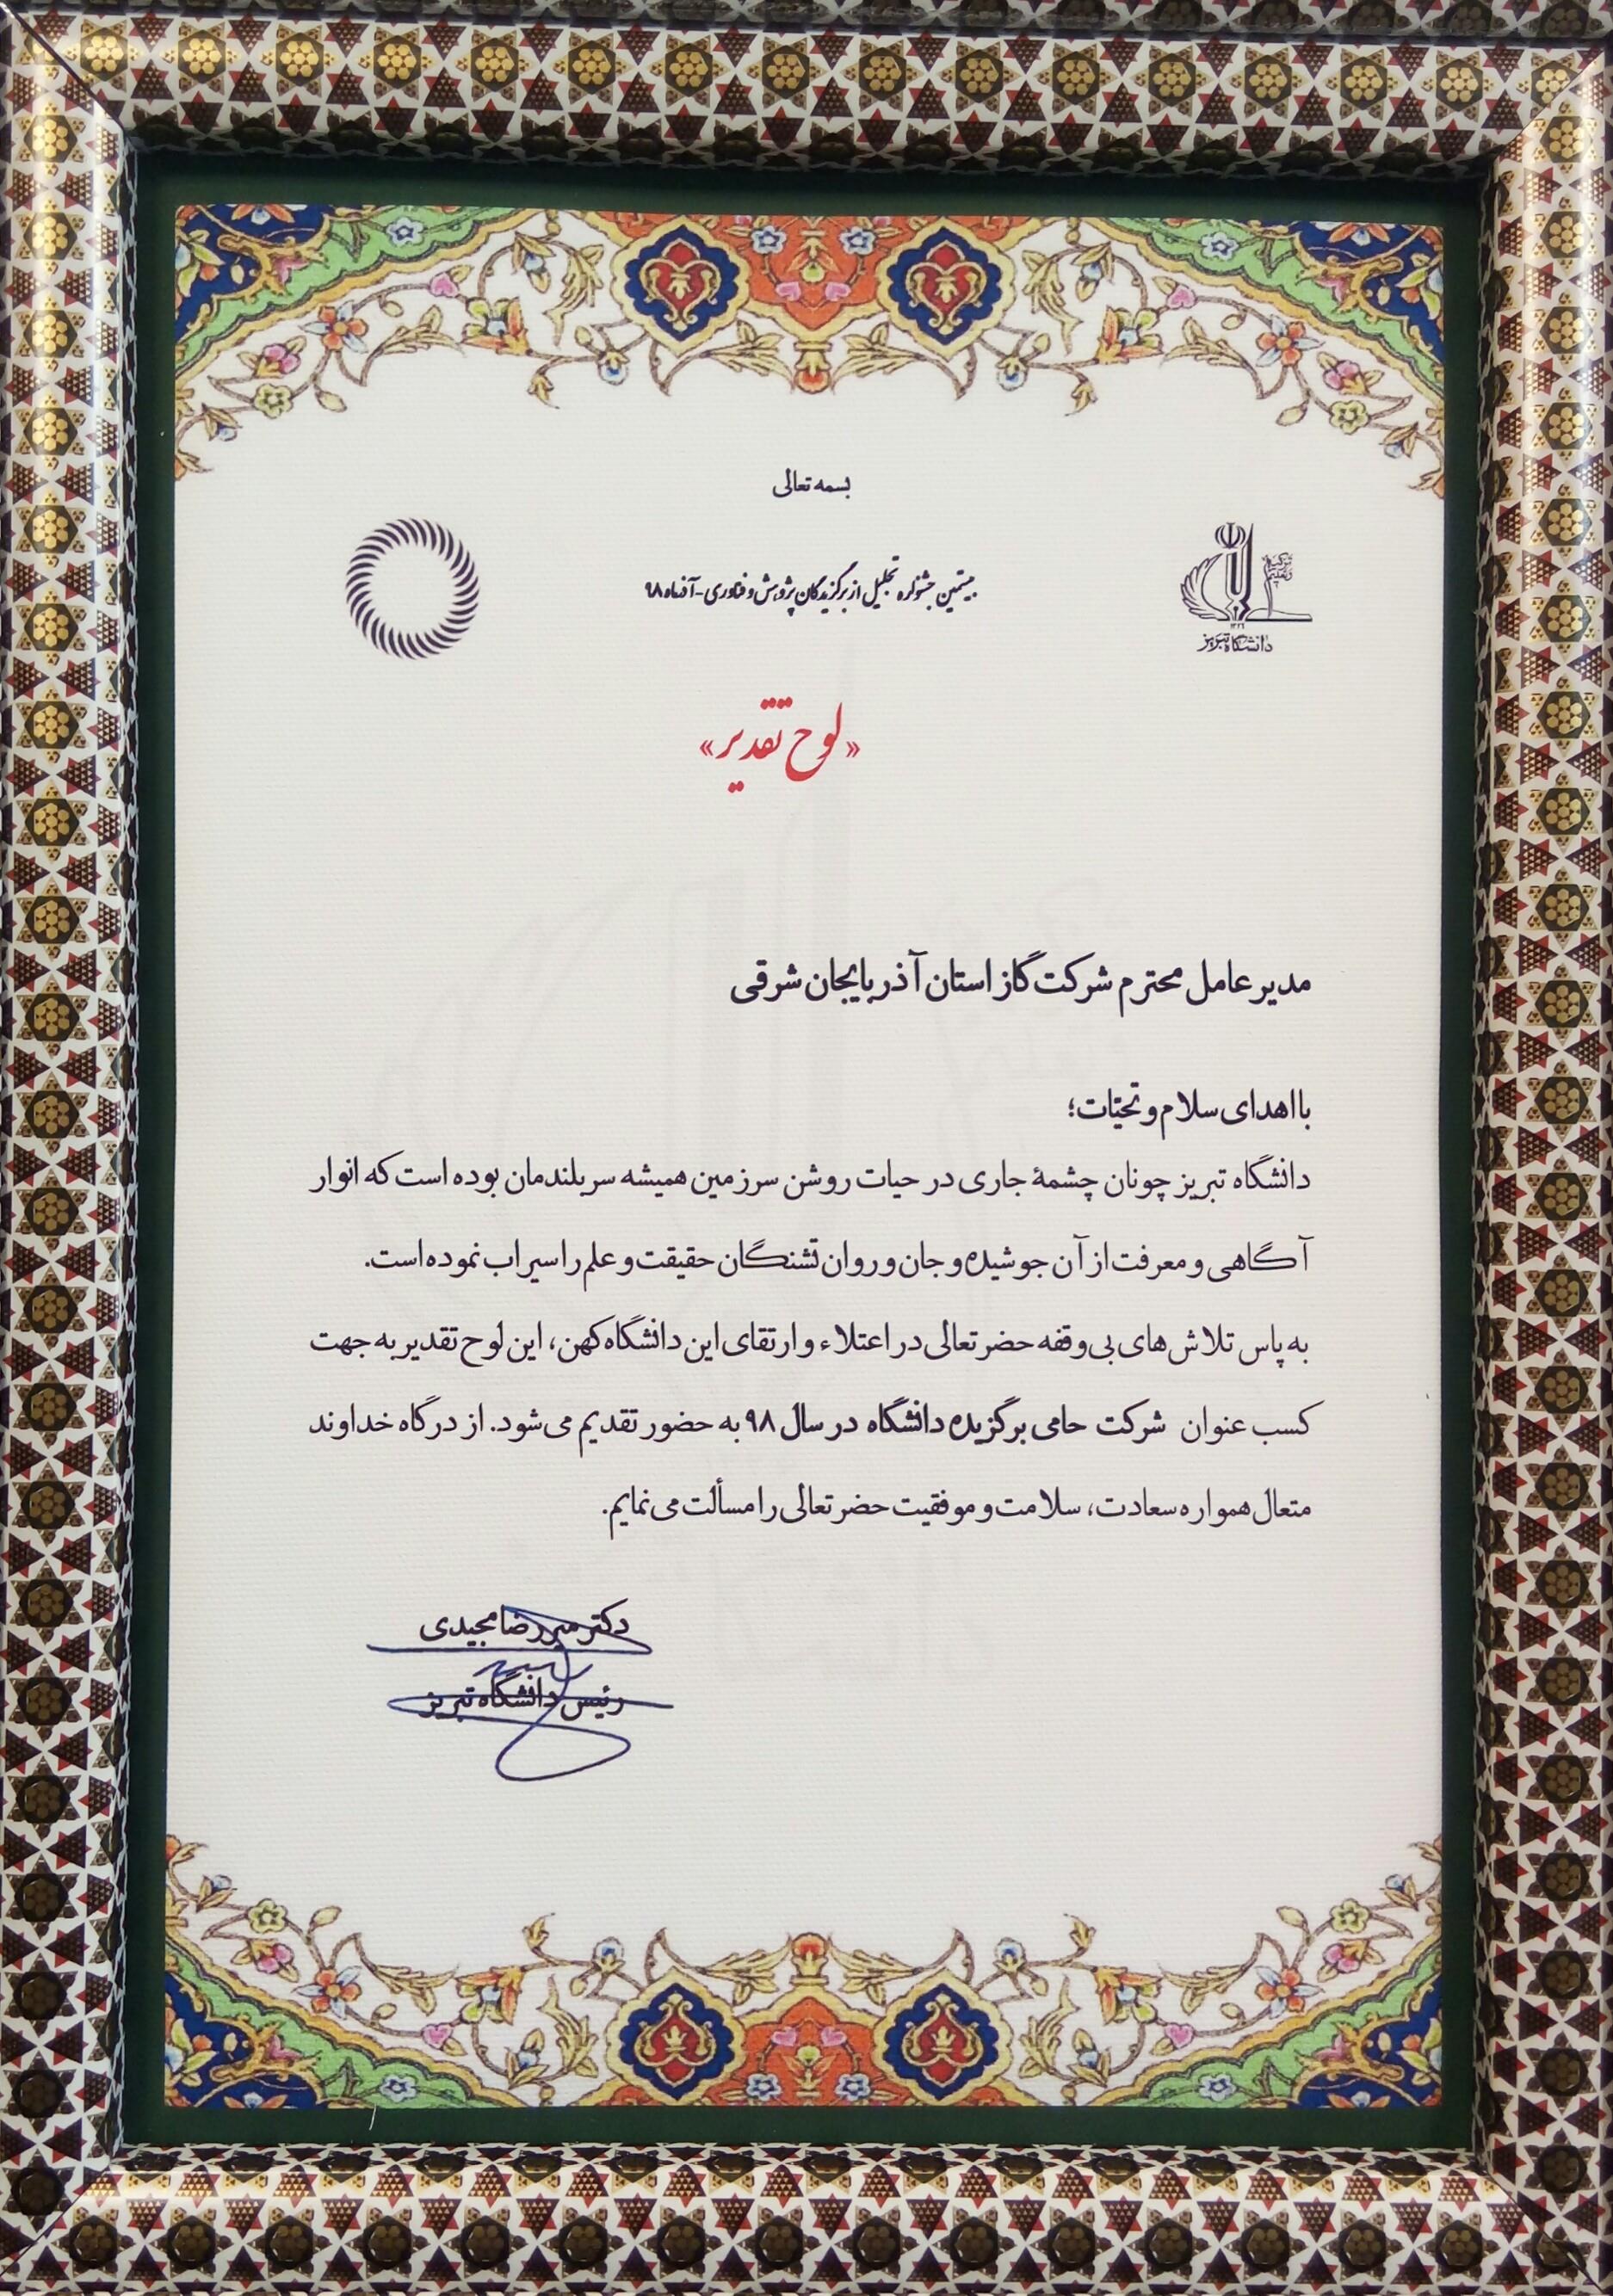 بسمه تعالی
بیستمین جشنواره تجلیل از برگزیدگان پژوهش و فناوری - آذرماه ۹۸
۱۳۲۶
دانشگاه تبریز
«لوح تقدیر»
مدیر عامل محترم شرکت گاز استان آذربایجان شرقی
با اهدای سلام و تحیّات؛
دانشگاه تبریز چونان چشمهٔ جاری در حیات روشن سرزمین همیشه سربلندمان بوده است که انوار
آگاهی و معرفت از آن جوشیده و جان و روان تشنگان حقیقت و علم را سیراب نموده است.
به پاس تلاش های بی وقفه حضرتعالی در اعتلاء و ارتقای این دانشگاه کهن، این لوح تقدیر به جهت
کسب عنوان شرکت حامی برگزیده دانشگاه در سال ۹۸ به حضور تقدیم می شود. از درگاه خداوند
متعال همواره سعادت، سلامت و موفقیت حضرتعالی را مسألت می نمایم.
دکتر میررضا مجیدی
رئیس دانشگاه تبریز